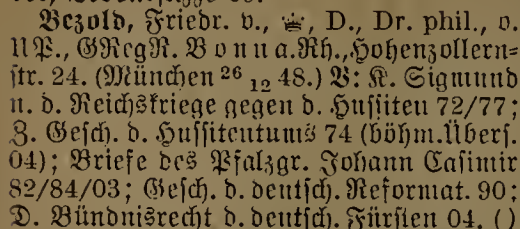 Bezold, Friedr. v., D., Dr. phil., o.
UP., GRegR. Bonn a.Rh., Hohenzollern=
str. 24. (München 26 12 48.) V: K. Sigmund
u. d. Reichskriege gegen d. Hussiten 72/77;
Z. Gesch. d. Hussitentums 74 (böhm.Übers.
04); Briefe des Pfalzgr. Johann Casimir
82/84/03; Gesch. d. deutsch. Reformat. 90;
D. Bündnisrecht d. deutsch. Fürsten 04. ()